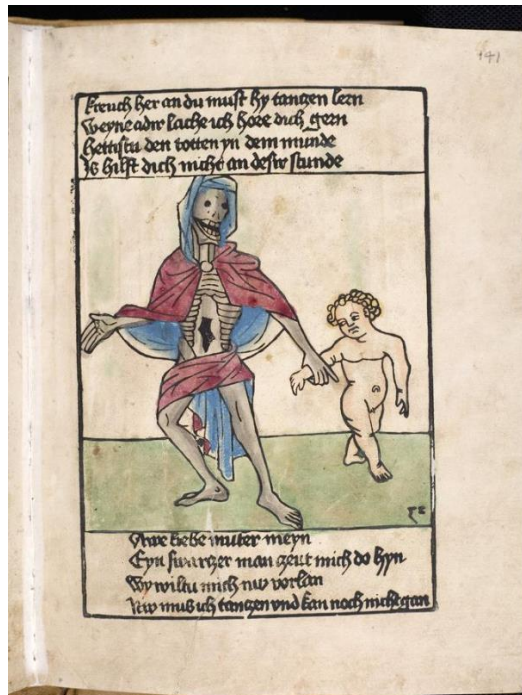 141
kreuch her an du must hy tanczen lern
Weyne adir lache ich hore dich gern
Hettistu den totten yn dem munde
Is hilft dich nicht an desir stunde
Owe liebe muter meyn
Eyn swarczer man czeut mich do hyn
Wy wiltu mich nw vorlan
Nw mus ich tanczen vnd kan noch nicht gan